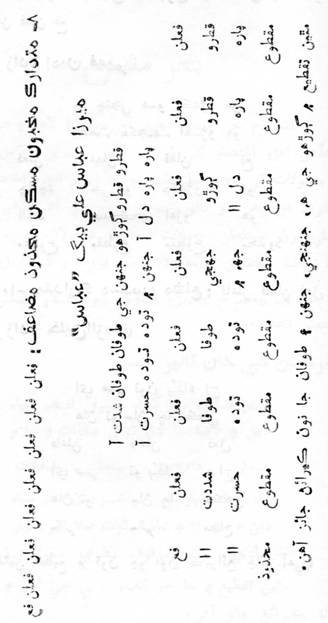 ٨_ متدارڪ مخبون مسڪن محذوذ مضاعف: فعلن فعلن فعلن فعلن فعلن فعلن فعلن فع
ميرزا عباس علي بيگ ”عباس“
قطرو قطرو ڳوڙهو جنهن جي طوفان طوفان شدت آ
پاره پاره دل آ جنهن ۾ توده توده حسرت آ
فعلن فعلن فعلن فعلن فعلن فعلن فعلن فع
قطرو قطرو ڳوڙو جهجي طوفا طوفا شددت اا
پاره پاره دل اا جهه ۾ توده توده حسرت اا
مقطوع مقطوع مقطوع مقطوع مقطوع مقطوع مقطوع محذوذ
تقطيع ۾ ڳوڙهو جي هہ، جنهنجي، جنهن ۽ طوفان جا نون ڪيرائڻ جائز آهن.